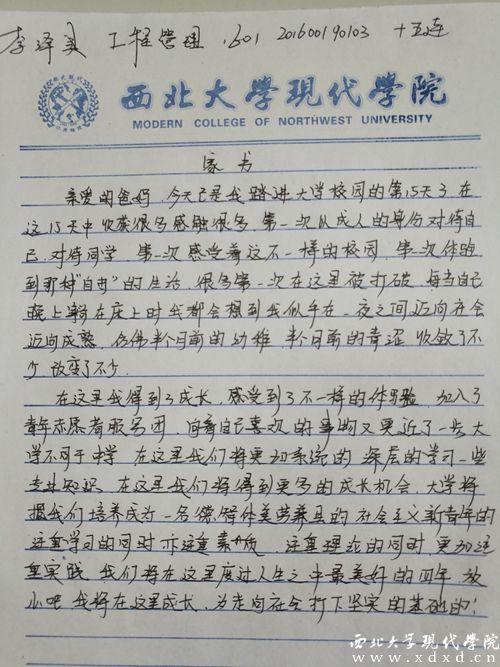 李泽美 工程管理1601 201600190103 十五连
西北大学现代学院
MODERN COLLEGE OF NORTHWEST UNIVERSITY
家书
亲爱的爸妈，今天已是我踏进大学校园的第15天了，在
这15天中收获很多感触很多，第一次从成人的身份对待自
己，对待同学，第一次感受着这不一样的校园，第一次体验
到那种"自由"的生活，很多第一次在这里被打破，每当自己
晚上躺在床上时我都会想到我似乎在一夜之间迈向社会
迈向成熟，仿佛半个月前的幼稚，半个月前的青涩，收敛了不
少，改变了不少。
在这里我得到了成长，感受到了不一样的体验，加入了
青年志愿者服务团，向着自己喜欢的事物又更近了一步，大
学不同于中学，在这里我们将更加系统的，深层的学习一些
专业知识，在这里我们将得到更多的成长机会，大学将
把我们培养成为一名德智体美劳兼具的社会主义新青年的
注重学习的同时亦注重素质，注重理论的同时，更加注
重实践，我们将在这里度过人生之中最美好的四年，放
心吧，我将在这里成长，为走向社会打下坚实的基础的！
西北大学现代学院
www.xdxd.cn